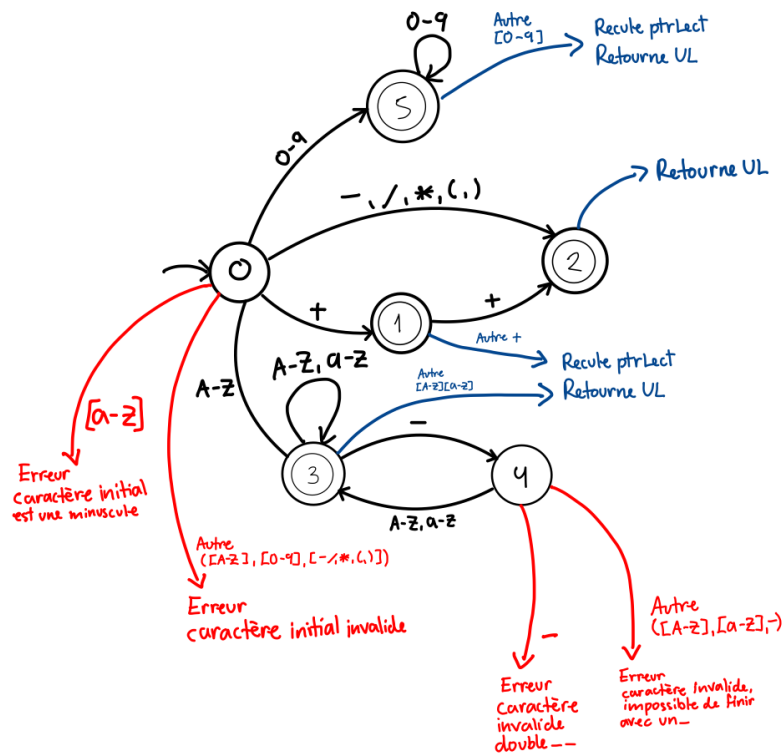 0-9
Autre
[0-9]
Recule ptrLect
Retourne UL
5
0-9
-, /, *, (, )
Retourne UL
0
2
+
1
+
Autre +
Recule ptrLect
Retourne UL
A-Z, a-z
Autre
[A-Z][a-z]
A-Z
[a-z]
-
3
4
A-Z, a-z
Erreur
caractère initial
est une minuscule
Autre
([A-Z], [0-9], [-/,*,(,)])
Erreur
caractère initial invalide
-
Autre
([A-Z], [a-z],-)
Erreur
caractère
invalide
double _ _
Erreur
caractère invalide,
impossible de finir
avec un _